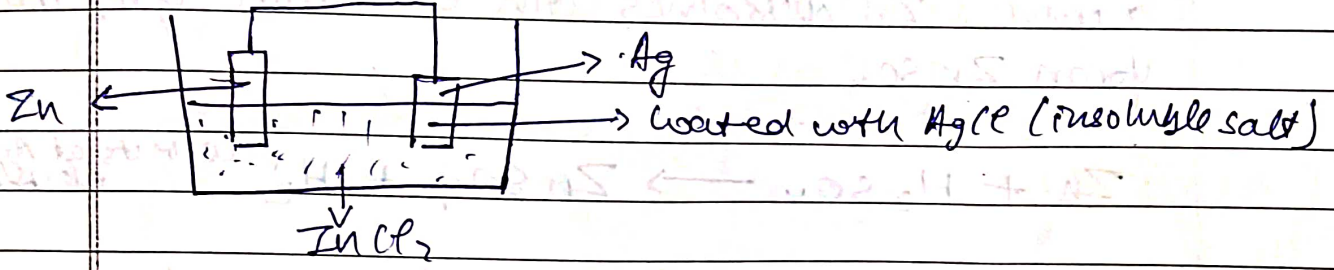 Ag
Zn
Coated with AgCl (insoluble salt)
ZnCl₂